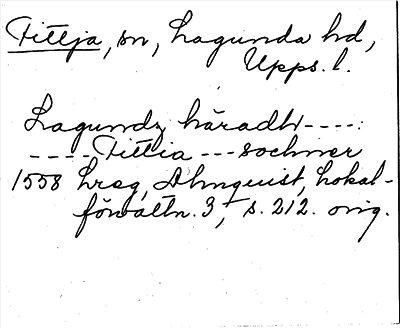 Tittja, sn, Lagunda hd,
Upps. l.
Lagundz häradh ----:
---- Tittia --- sochner
1558 Lreg, Almquist, Lokal-
förvaltn. 3, s. 212. orig.